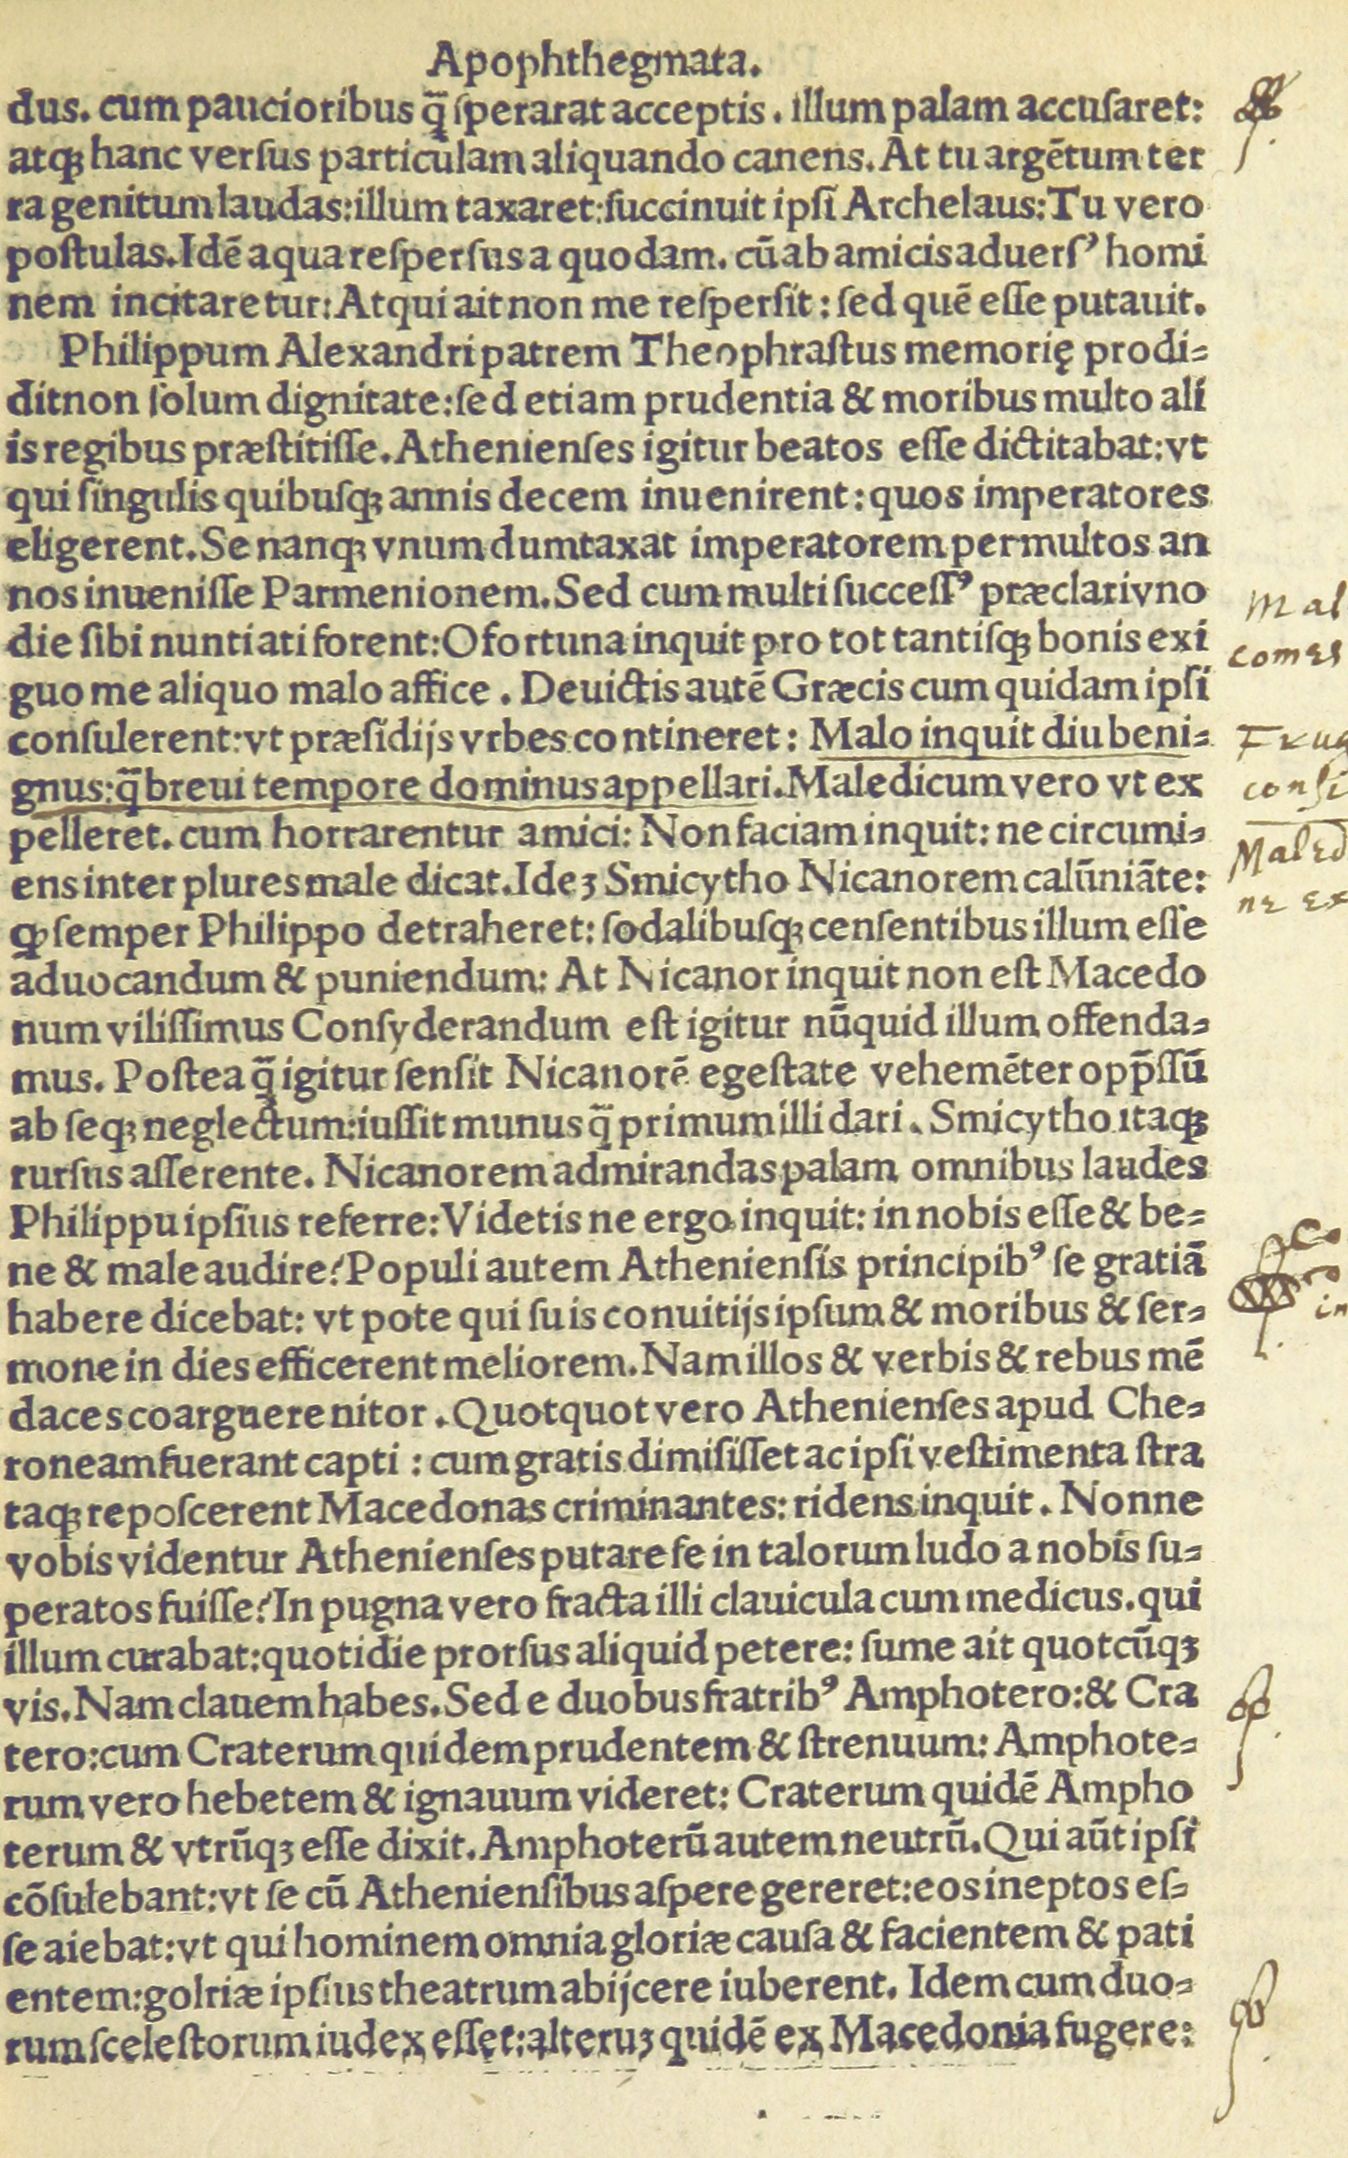 Apophthegmata.
dus. cum paucioribus q̃ ſperarat acceptis. illum palam accuſaret:
atqꝫ hanc verſus particulam aliquando canens. At tu argētum ter
ra genitum laudas: illum taxaret: ſuccinuit ipſi Archelaus: Tu vero
poſtulas. Idē aqua reſperſus a quodam. cū ab amicis aduerſꝰ homi
nem incitaretur: Atqui ait non me reſperſit: ſed quē eſſe putauit.
Philippum Alexandri patrem Theophraſtus memorię prodi⸗
dit non ſolum dignitate: ſed etiam prudentia & moribus multo ali
is regibus præſtitiſſe. Athenienſes igitur beatos eſſe dictitabat: vt
qui ſingulis quibuſqꝫ annis decem inuenirent: quos imperatores
eligerent. Se nanqꝫ vnum dumtaxat imperatorem per multos an
nos inueniſſe Parmenionem. Sed cum multi ſucceſſꝰ præclari vno
die ſibi nuntiati forent: O fortuna inquit pro tot tantiſqꝫ bonis exi
guo me aliquo malo affice. Deuictis autē Græcis cum quidam ipſi
conſulerent: vt præſidijs vrbes contineret: Malo inquit diu beni⸗
gnus: q̃ breui tempore dominus appellari. Maledicum vero vt ex
pelleret. cum horrarentur amici: Non faciam inquit: ne circumi⸗
ens inter plures male dicat. Ideꝫ Smicytho Nicanorem calūniāte:
ꝙ ſemper Philippo detraheret: ſodalibuſqꝫ cenſentibus illum eſſe
aduocandum & puniendum: At Nicanor inquit non eſt Macedo
num viliſſimus Conſyderandum eſt igitur nūquid illum offenda⸗
mus. Poſtea q̃ igitur ſenſit Nicanorē egeſtate vehemēter opp̄ſſū
ab ſeqꝫ neglectum: iuſſit munus q̃ primum illi dari. Smicytho itaqꝫ
rurſus aſſerente. Nicanorem admirandas palam omnibus laudes
Philippu ipſius referre: Videtis ne ergo inquit: in nobis eſſe & be⸗
ne & male audire? Populi autem Athenienſis principibꝰ ſe gratiā
habere dicebat: vt pote qui ſuis conuitijs ipſum & moribus & ſer⸗
mone in dies efficerent meliorem. Nam illos & verbis & rebus mē
daces coarguere nitor. Quotquot vero Athenienſes apud Che⸗
roneam fuerant capti: cum gratis dimiſiſſet ac ipſi veſtimenta ſtra
taqꝫ repoſcerent Macedonas criminantes: ridens inquit. Nonne
vobis videntur Athenienſes putare ſe in talorum ludo a nobis ſu⸗
peratos fuiſſe? In pugna vero fracta illi clauicula cum medicus. qui
illum curabat: quotidie prorſus aliquid petere: ſume ait quotcūqꝫ
vis. Nam clauem habes. Sed e duobus fratribꝰ Amphotero: & Cra
tero: cum Craterum quidem prudentem & ſtrenuum: Amphote⸗
rum vero hebetem & ignauum videret: Craterum quidē Ampho
terum & vtrūqꝫ eſſe dixit. Amphoterū autem neutrū. Qui aūt ipſi
cōſulebant: vt ſe cū Athenienſibus aſpere gereret: eos ineptos eſ⸗
ſe aiebat: vt qui hominem omnia gloriæ cauſa & facientem & pati
entem: golriæ ipſius theatrum abijcere iuberent. Idem cum duo⸗
rum ſceleſtorum iudex eſſet: alteruꝫ quidē ex Macedonia fugere:
Mal
comes
Frug
conſi
Maled
ne ex
Co
in